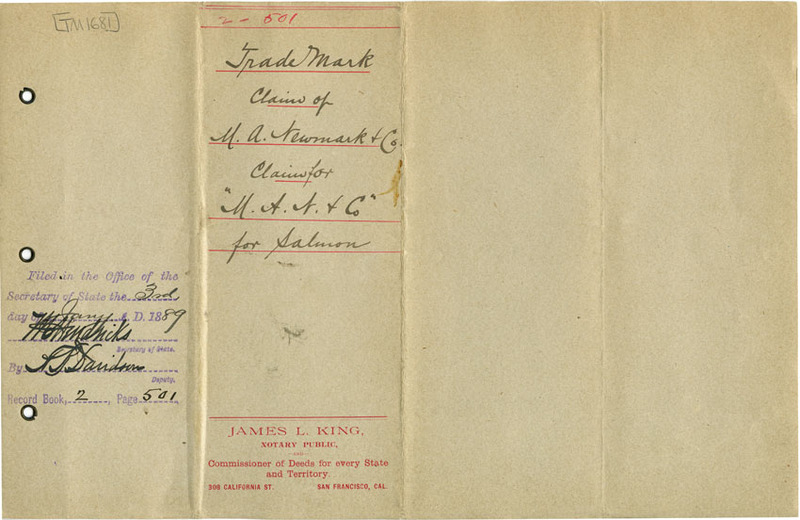 TM1681
2 - 501
Trade Mark
Claim of
M. A. Newmark & Co.
Claim for
"M. A. N. & Co"
for Salmon
Filed in the Office of the
Secretary of State the 3rd
day of Jany A. D. 1889
W C Hendricks
Secretary of State.
By Davidson
Deputy.
Record Book, 2, Page 501
JAMES L. KING,
NOTARY PUBLIC,
AND
Commissioner of Deeds for every State
and Territory.
306 CALIFORNIA ST. SAN FRANCISCO, CAL.